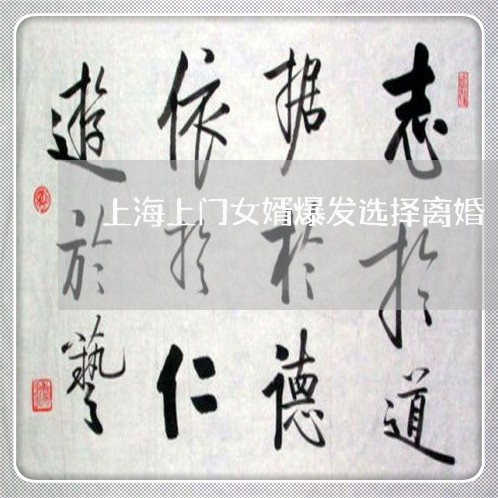 志於道
据於德
依於仁
遊於藝
上海上门女婿爆发选择离婚